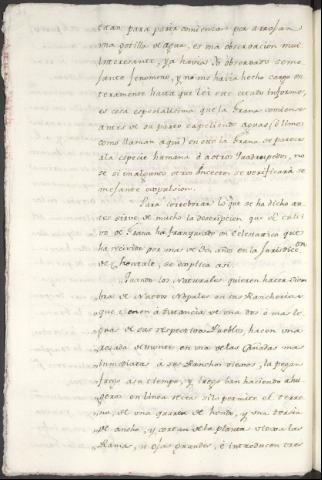 estan para parir comienzan por arrojar
una gotilla de agua, es una observacion mui
interesante, ya havia yo observado seme-
jante fenomeno, y no me havia hecho cargo en-
teramente hasta que leì este citado informe,
es cosa especialissima que la Grana comiense
antes de su parto expeliendo aguas (ò limos
como llaman aqui) en esto la Grana se parece
à la especie humana ò à otros Quadrupedos, no
se si en algunos otros Insectos se verificarà se-
mejante expulsion.
Para corroborar lo que se ha dicho an-
tes sirve de mucho la descripcion que el culti-
vo de Grana ha franqueado un Eclesiastico que
ha recivido por mas de dos años en la Jurisdiccion
de Chontales, se explica asi.
Quando los Naturales quieren hacer siem-
bras de Nuevos Nopales en sus Rancherias
que tienen à distancia de una dos ò mas le-
guas de sus respectivos Pueblos, hacen una
rosada de monte en una de las Cañadas mas
inmediatas à sus Ranchos viejos, la pegan
fuego à su tiempo, y luego ban haciendo ahu-
geros en linea recta si lo permite el terre-
no, de una quarta de hondo, y una tercia
de ancho, y cortan de la planta vieja las
Ramas, ù ojas grandes, è introducen tres